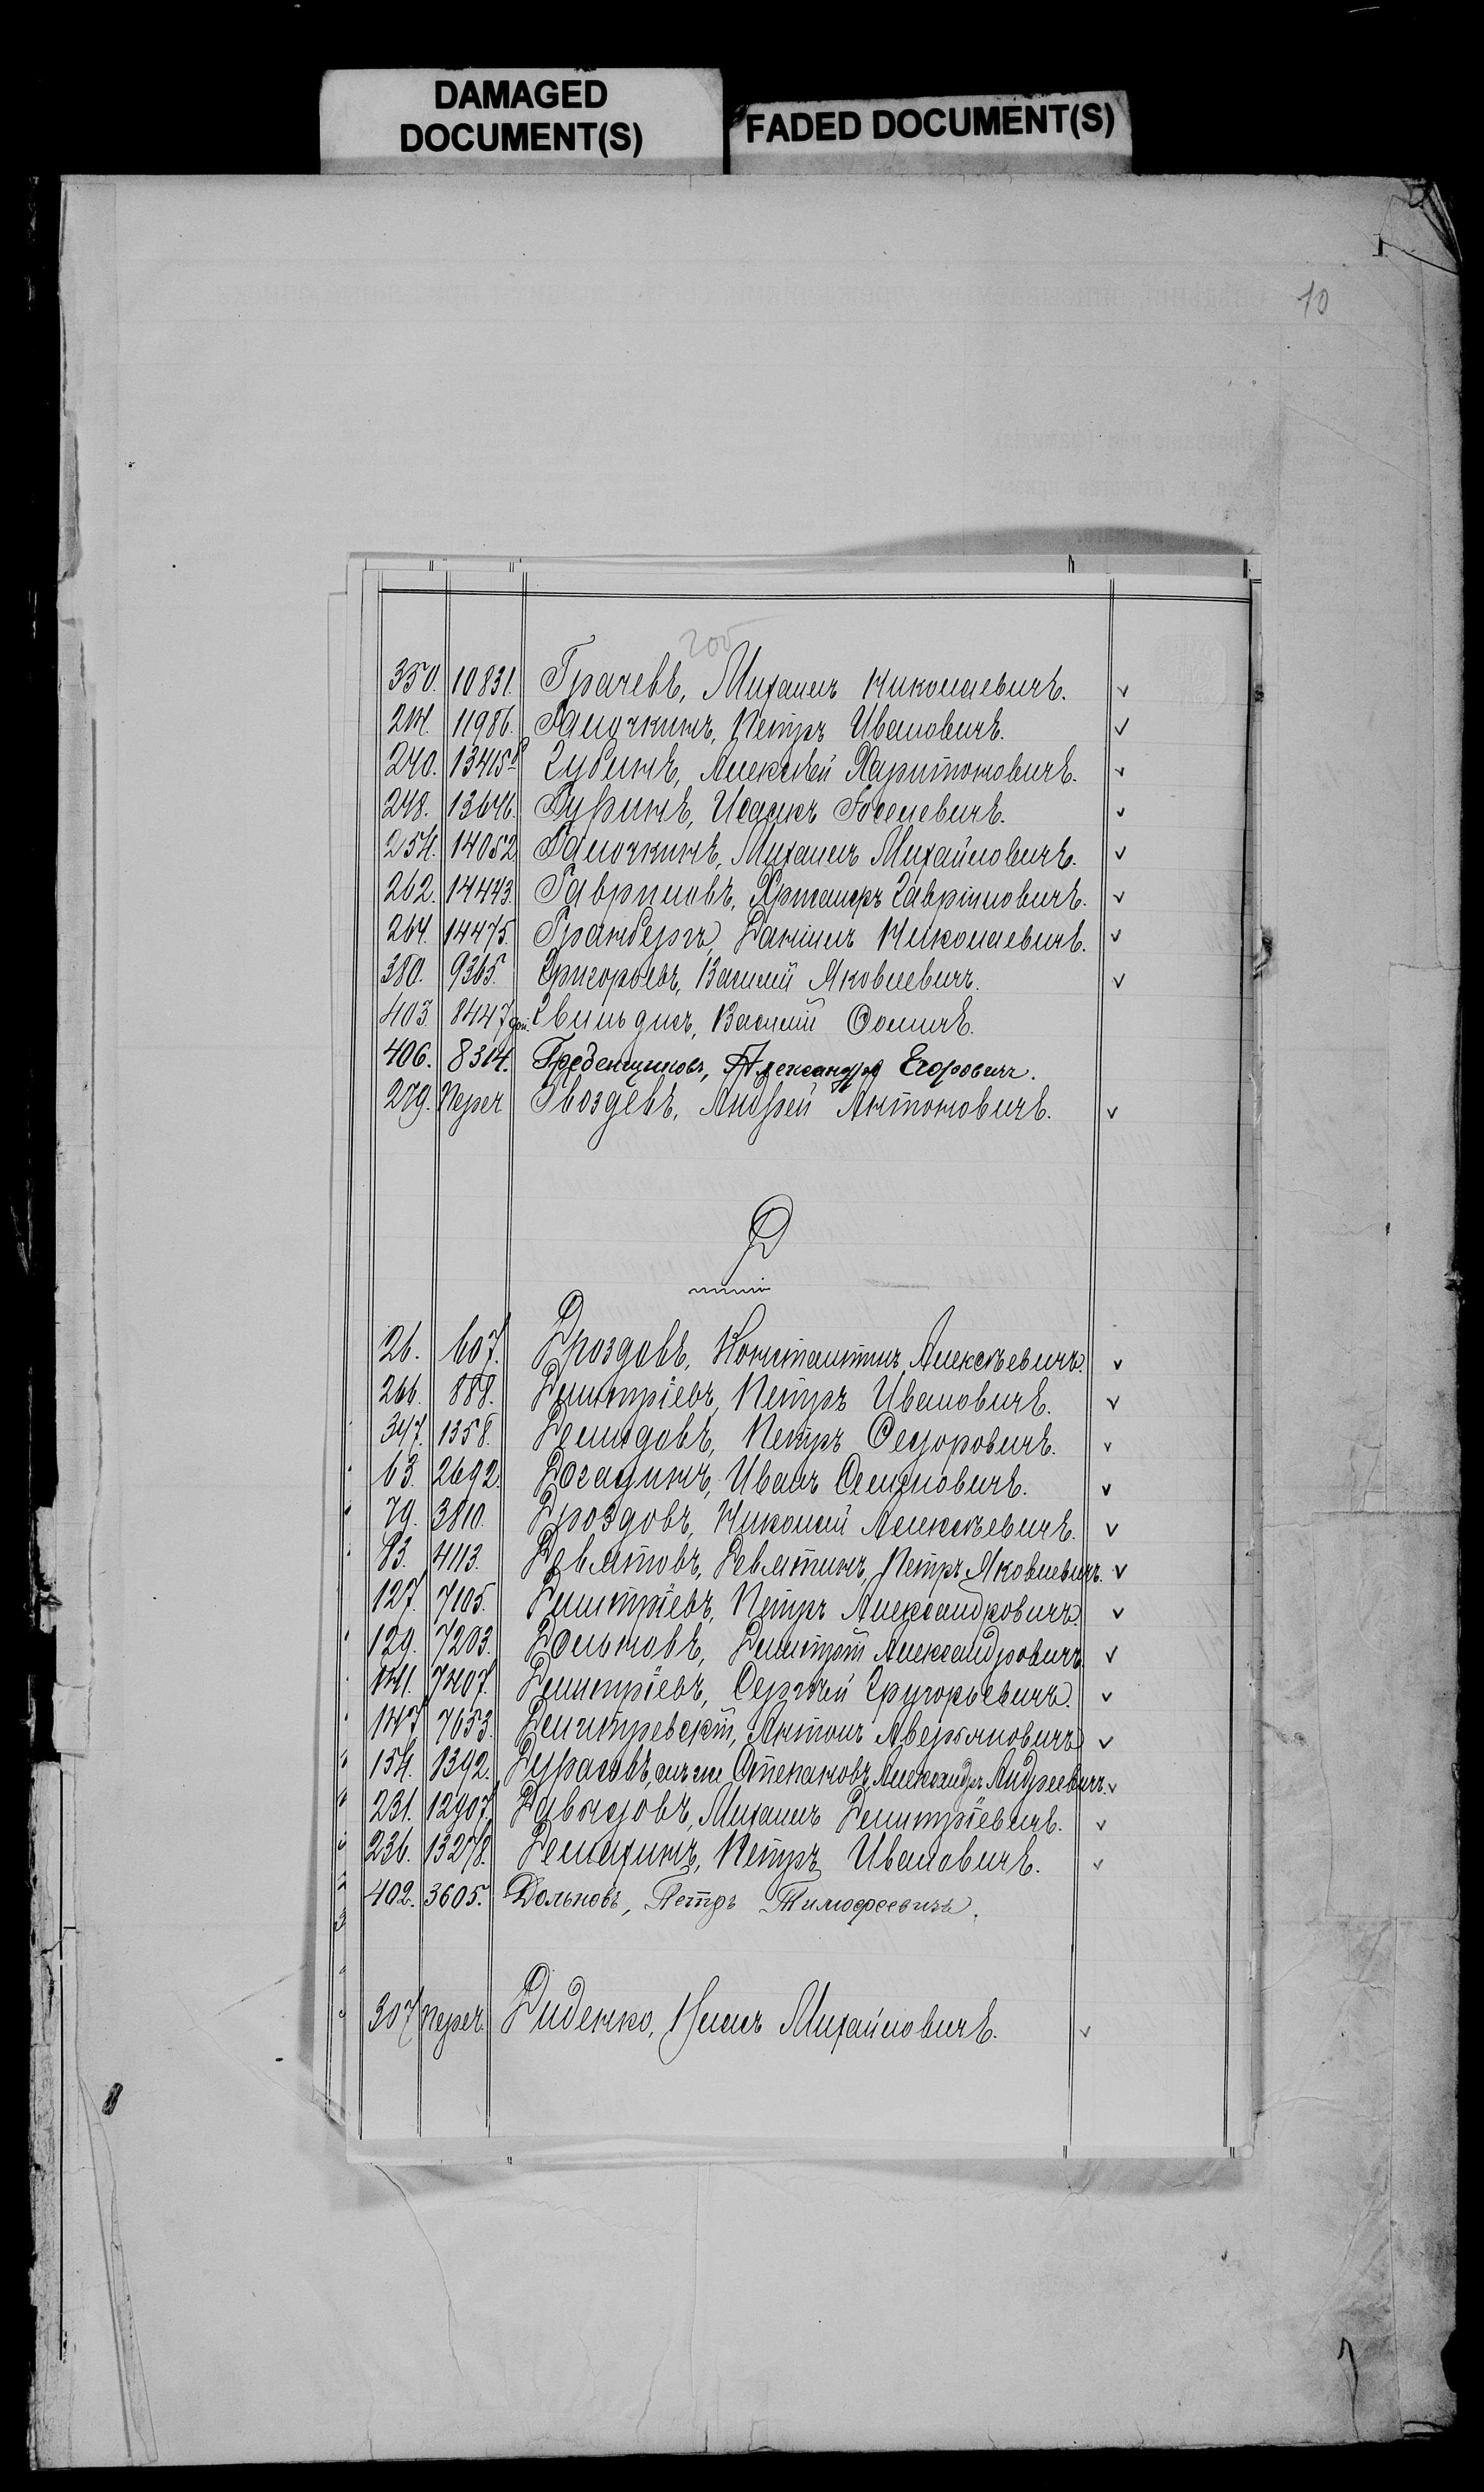 DAMAGED
DOCUMENT(S)
FADED DOCUMENT(S)
10
200
350. 10831. Грачевъ, Михаилъ Николаевичъ. v
214. 11986. Галочкинъ, Петръ Ивановичъ. v
240. 13415 Губинъ, Алексѣй Харитоновичъ. v
248. 13646. Гуринъ, Исаакъ Іоселевичъ. v
254. 14052 Галочкинъ, Михаилъ Михайловичъ. v
262. 14443. Гавриловъ, Гавріиловичъ. v
264. 14475. Гранбергъ, Даніилъ Николаевичъ. v
380. 9365. Григорьевъ, Василій Яковлевичъ. v
403 8447 Василій Ѳомичъ.
406. 8314. Гребенщиковъ, Александръ Егоровичъ.
279. Переч Гвоздевъ, Андрей Антоновичъ. v
Д
26. 607. Дроздовъ, Константинъ Алексѣевичъ. v
266. 888. Дмитріевъ, Петръ Ивановичъ. v
347. 1358. Демидовъ, Петръ Ѳедоровичъ. v
63. 2692. Догадинъ, Иванъ Семеновичъ. v
79. 3810. Дроздовъ, Николай Алексѣевичъ. v
83. 4113. Девятовъ, Девятинъ, Петръ Яковлевичъ. v
127. 7105. Дмитріевъ, Петръ Александровичъ. v
129. 7203. Дольновъ, Дмитрій Александровичъ v
141. 7407. Дмитріевъ, Сергѣй Григорьевичъ. v
147 7653. Дмитревскій, Антонъ Аверьяновичъ v
154. 8392. Дурасовъ, онъ же Степановъ, Александръ Андреевичъ. v
231. 12907. Давыдовъ, Михаилъ Дмитріевичъ. v
236. 13278. Демахинъ, Петръ Ивановичъ. v
402. 3605. Дольновъ, Петръ Тимофеевичъ.
307 Переч. Диденко, Михайловичъ. v